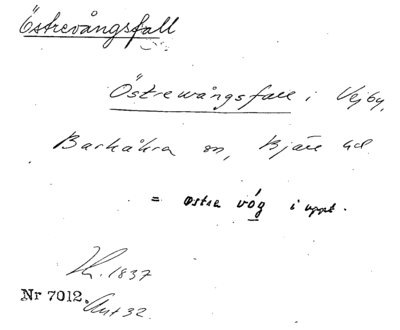 Östrevångsfall
Östrewångsfall i Vejby,
Barkåkra sn, Bjäre hd
= östra vóg i uppt.
1837
Nr 7012.
32.